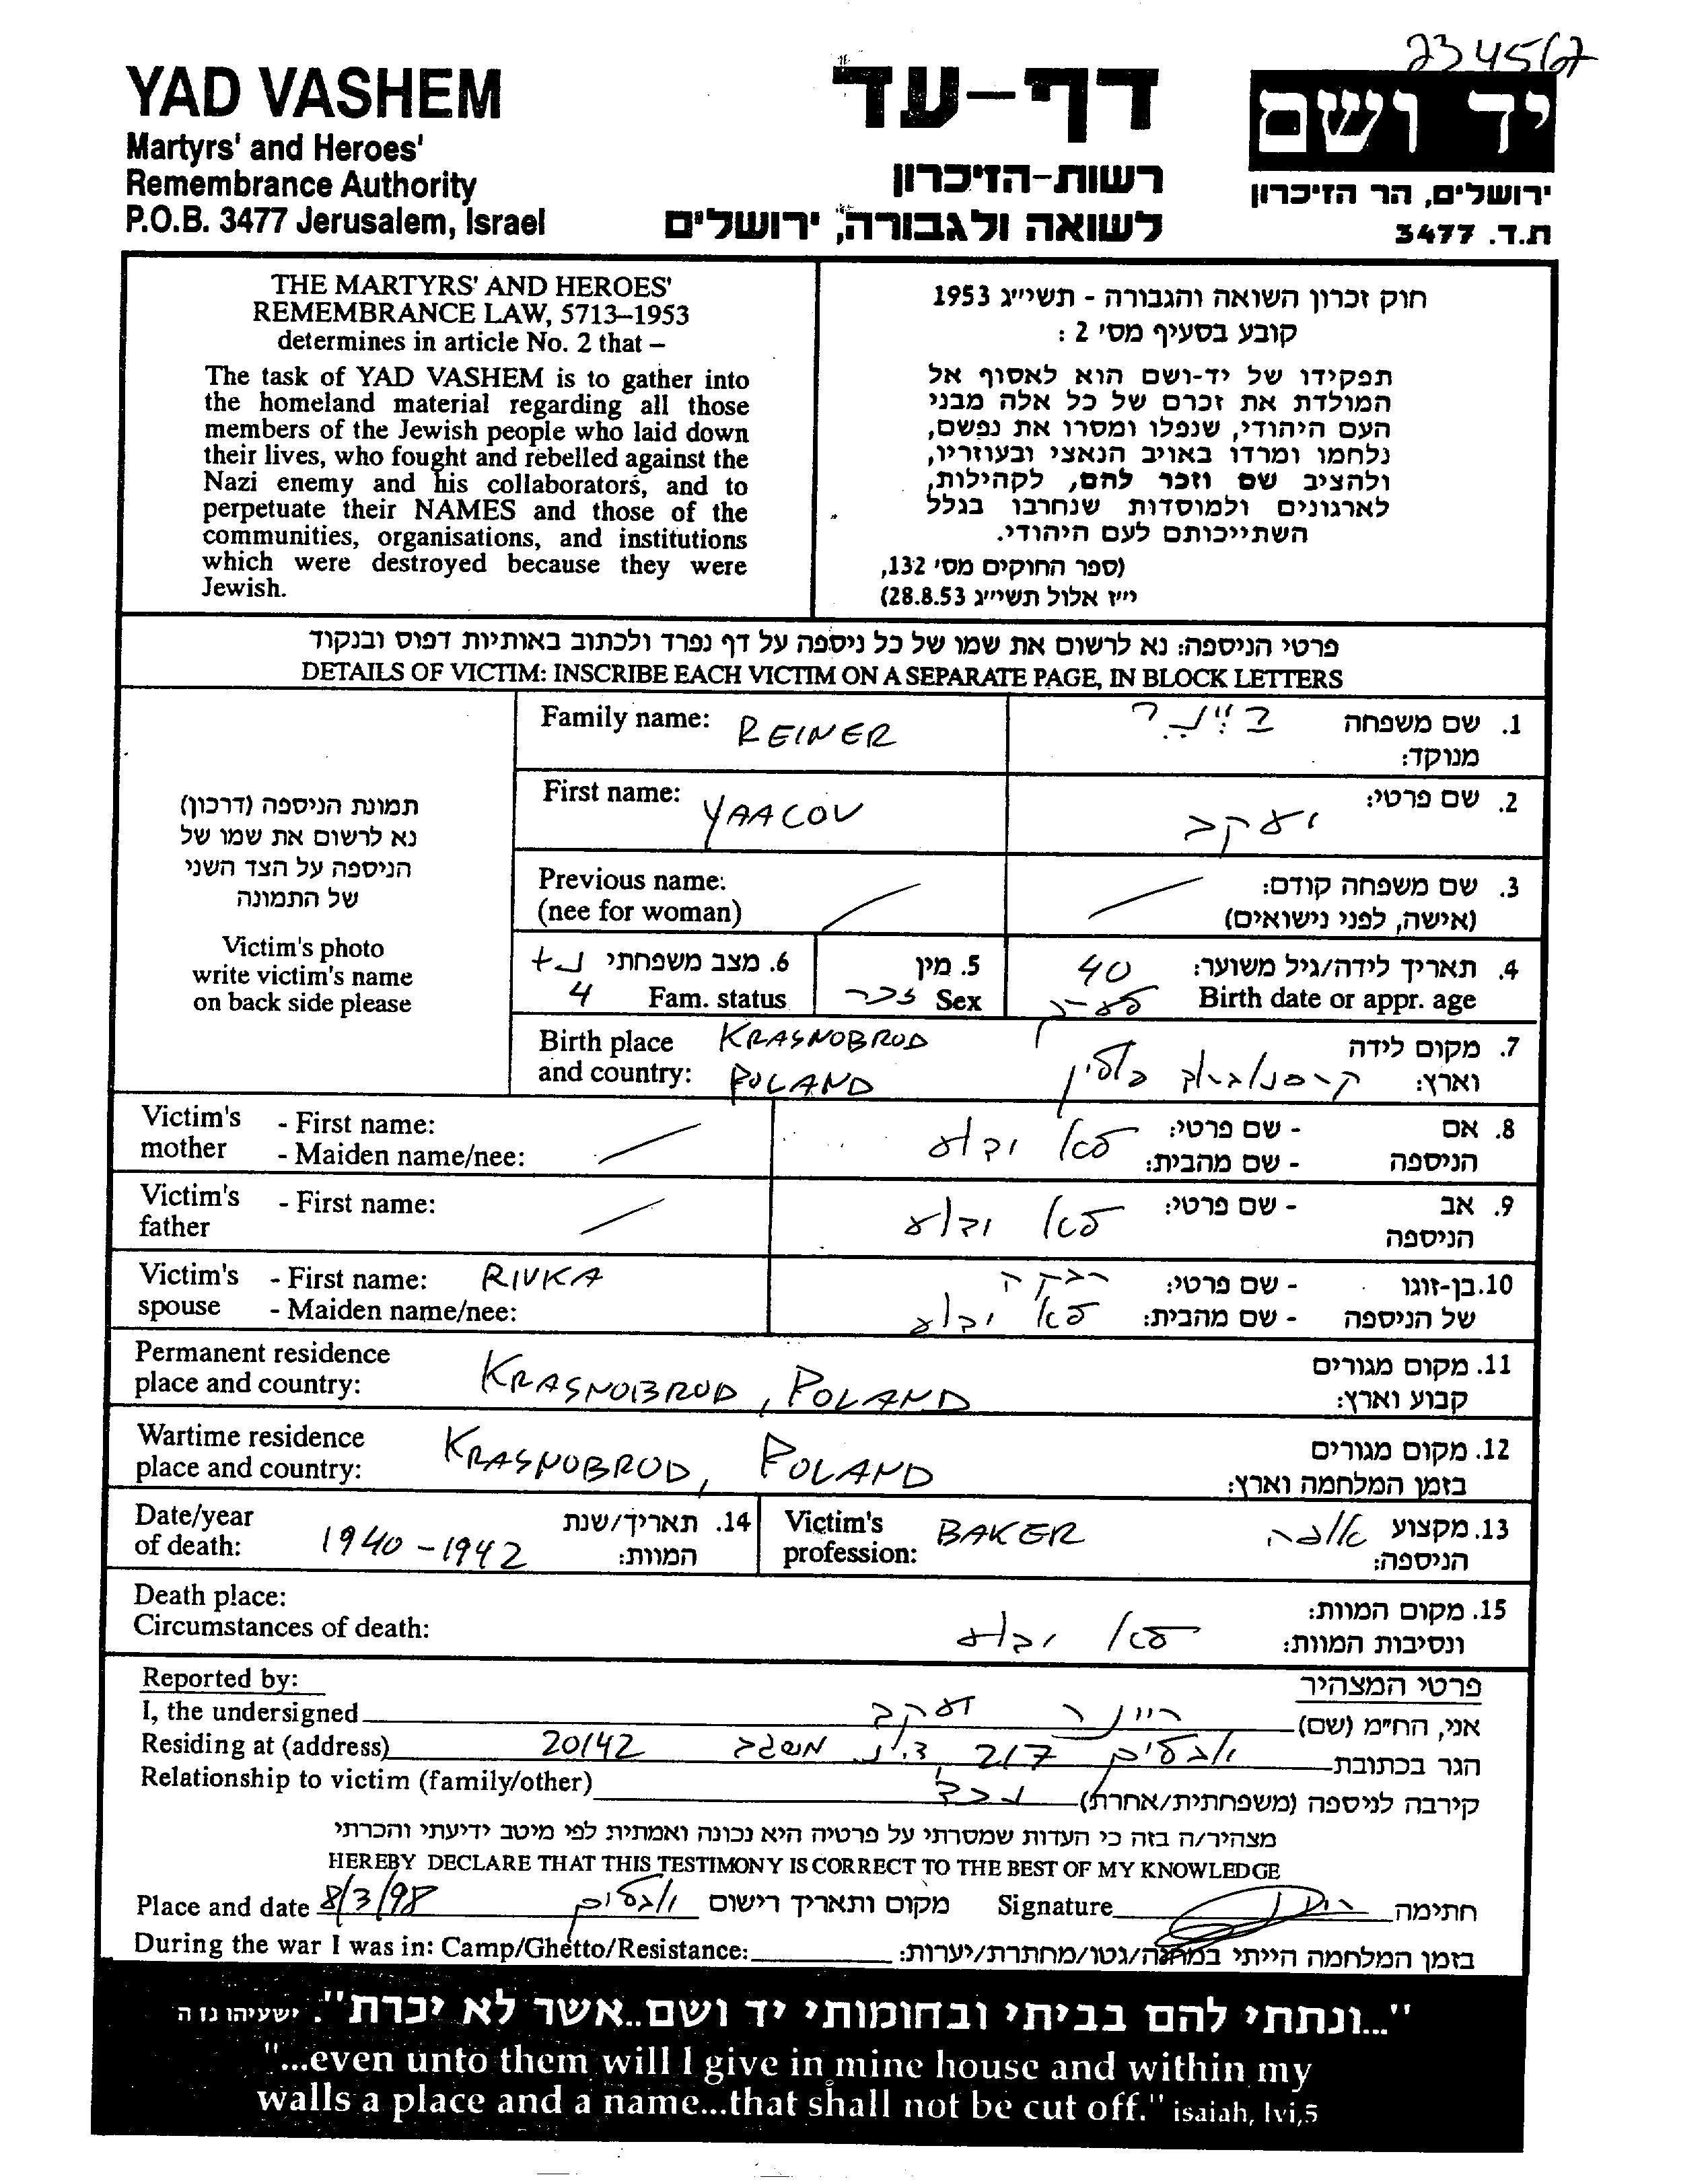 234567
YAD VASHEM
Martyrs' and Heroes'
Remembrance Authority
P.O.B. 3477 Jerusalem, Israel
דף-עד
רשות-הזיכרון
לשואה ולגבורה, ירושלים
יד ושם
ירושלים, הר הזיכרון
ת.ד. 3477
THE MARTYRS' AND HEROES'
REMEMBRANCE LAW, 5713–1953
determines in article No. 2 that –
The task of YAD VASHEM is to gather into
the homeland material regarding all those
members of the Jewish people who laid down
their lives, who fought and rebelled against the
Nazi enemy and his collaborators, and to
perpetuate their NAMES and those of the
communities, organisations, and institutions
which were destroyed because they were
Jewish.
חוק זכרון השואה והגבורה - תשי״ג 1953
קובע בסעיף מס' 2 :
תפקידו של יד-ושם הוא לאסוף אל
המולדת את זכרם של כל אלה מבני
העם היהודי, שנפלו ומסרו את נפשם,
נלחמו ומרדו באויב הנאצי ובעוזריו,
ולהציב שם וזכר להם, לקהילות,
לארגונים ולמוסדות שנחרבו בגלל
השתייכותם לעם היהודי.
(ספר החוקים מס' 132,
י״ז אלול תשי״ג 28.8.53)
פרטי הניספה: נא לרשום את שמו של כל ניספה על דף נפרד ולכתוב באותיות דפוס ובנקוד
DETAILS OF VICTIM: INSCRIBE EACH VICTIM ON A SEPARATE PAGE, IN BLOCK LETTERS
תמונת הניספה (דרכון)
נא לרשום את שמו של
הניספה על הצד השני
של התמונה
Victim's photo
write victim's name
on back side please
Family name: REINER
ריינר
1. שם משפחה
מנוקד:
First name: YAACOV
יעקב
2. שם פרטי:
Previous name:
(nee for woman)
3. שם משפחה קודם:
(אישה, לפני נישואים)
6. מצב משפחתי נ+
4 Fam. status
5. מין
Sex זכר
4. תאריך לידה/גיל משוער: 40
Birth date or appr. age
Birth place KRASNOBROD
and country: POLAND
7. מקום לידה
וארץ: קרסנוברוד פולין
Victim's - First name:
mother - Maiden name/nee:
8. אם - שם פרטי:
הניספה - שם מהבית:
לא ידוע
Victim's - First name:
father
9. אב - שם פרטי: לא ידוע
הניספה
Victim's - First name: RIVKA
spouse - Maiden name/nee:
10. בן-זוגו - שם פרטי: רבקה
של הניספה - שם מהבית: לא ידוע
Permanent residence
place and country: KRASNOBROD, POLAND
11. מקום מגורים
קבוע וארץ:
Wartime residence
place and country: KRASNOBROD, POLAND
12. מקום מגורים
בזמן המלחמה וארץ:
Date/year
of death: 1940 - 1942
14. תאריך/שנת
המוות:
Victim's
profession: BAKER
13. מקצוע אופה
הניספה:
Death place:
Circumstances of death:
15. מקום המוות:
ונסיבות המוות: לא ידוע
Reported by:
פרטי המצהיר
I, the undersigned
אני, הח״מ (שם) ריינר יעקב
Residing at (address)
הגר בכתובת 217 ד.נ. משגב 20142
Relationship to victim (family/other)
קירבה לניספה (משפחתית/אחרת) נכד
מצהיר/ה בזה כי העדות שמסרתי על פרטיה היא נכונה ואמתית לפי מיטב ידיעתי והכרתי
HEREBY DECLARE THAT THIS TESTIMONY IS CORRECT TO THE BEST OF MY KNOWLEDGE
Place and date 8/3/98 מקום ותאריך רישום Signature חתימה
During the war I was in: Camp/Ghetto/Resistance: בזמן המלחמה הייתי במחנה/גטו/מחתרת/יערות:
"...ונתתי להם בביתי ובחומותי יד ושם..אשר לא יכרת". ישעיהו נו ה
"...even unto them will I give in mine house and within my
walls a place and a name...that shall not be cut off." isaiah, lvi,5